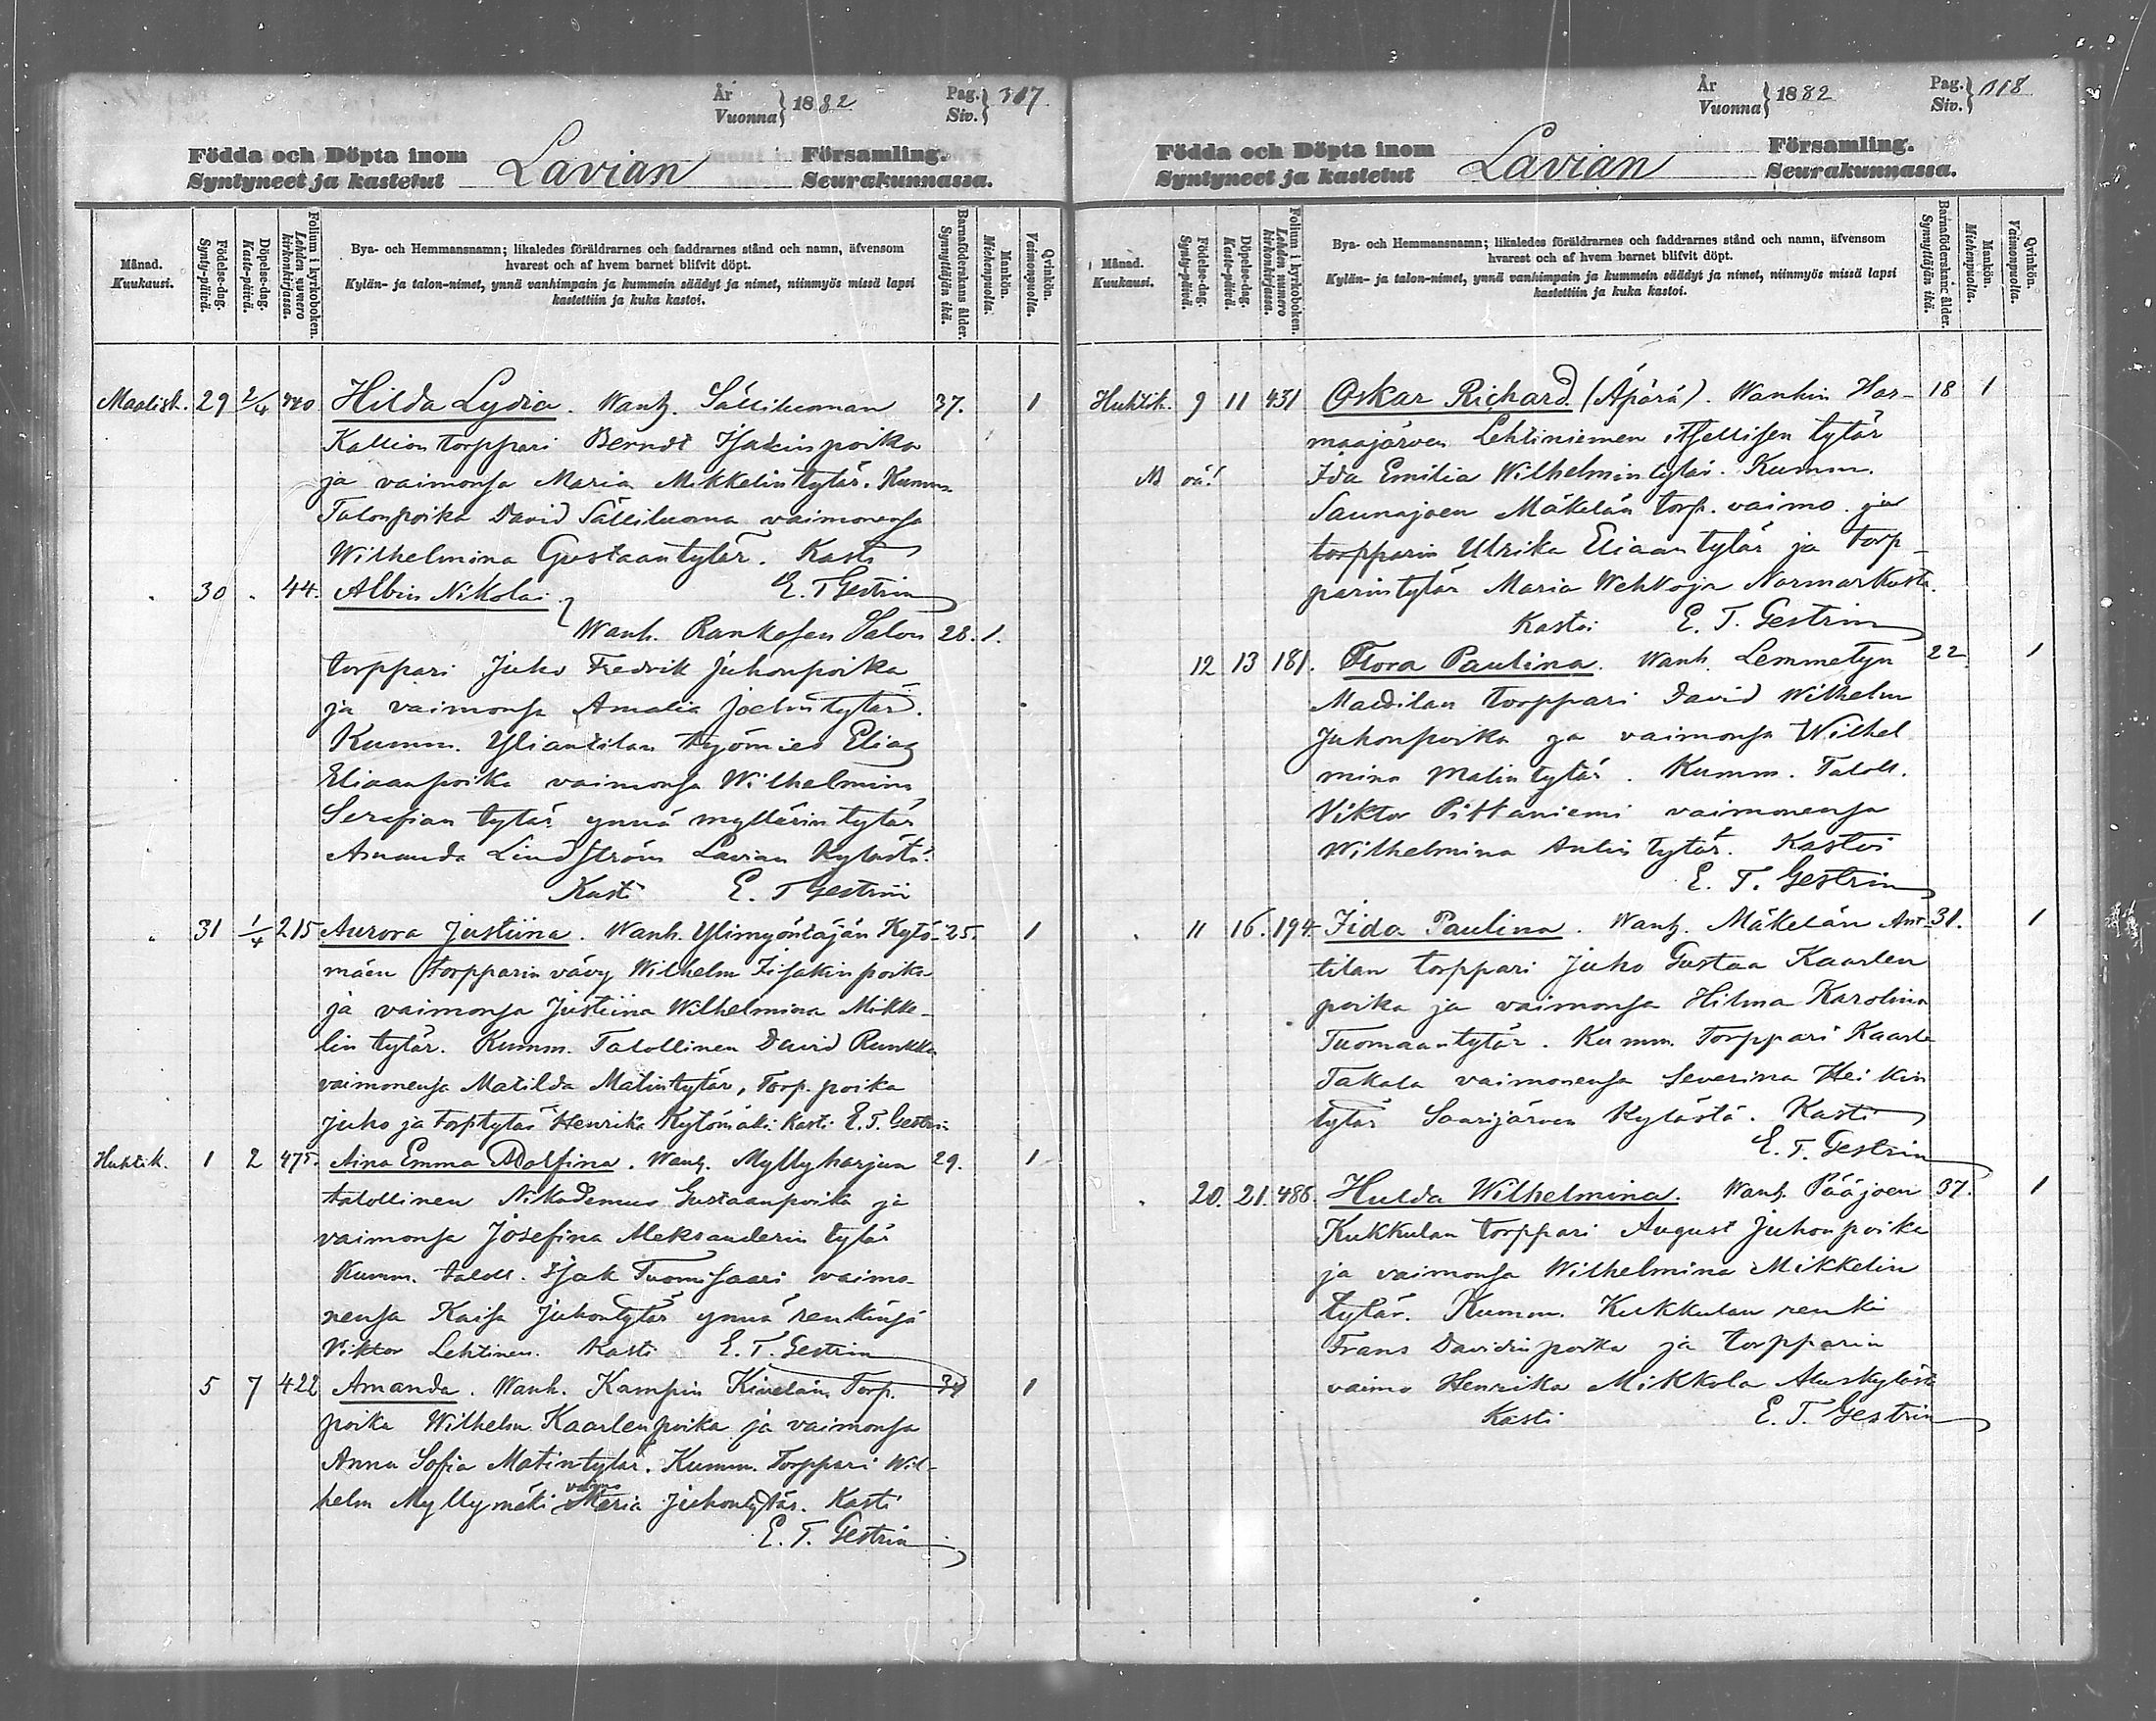 År
Vuonna } 1882
Pag.
Siv. } 317
Födda och Döpta inom
Syntyneet ja kastetut
Lavian
Församling.
Seurakunnassa.
Månad.
Kuukausi.
Födelse-dag.
Synty-päivä.
Döpelse-dag.
Kaste-päivä.
Folium i kyrkoboken.
Lehden numero
kirkonkirjassa.
Bya- och Hemmansnamn; likaledes föräldrarnes och faddrarnes stånd och namn, äfvensom
hvarest och af hvem barnet blifvit döpt.
Kylän- ja talon-nimet, ynnä vanhimpain ja kummein säädyt ja nimet, niinmyös missä lapsi
kastettiin ja kuka kastoi.
Barnaföderskans ålder.
Synnyttäjän ikä.
Mankön.
Miehenpuolia.
Qvinkön.
Vaimonpuolia.
Maalisk. 29 2/4 Hilda Lydia. Wanh. Sälliluoman 37. 1
Kallion torppari Berndt Isakinpoika
ja vaimonsa Maria Mikkelintytär. Kumm.
Talonpoika David Sälliluoma vaimonensa
Wilhelmina Gustaantytär. Kasti
" 30 " 44. Albin Nikolai. E. T Gestrin
Wanh. Rankosen Salon 28. 1.
torppari Juho Fredrik Juhonpoika
ja vaimonsa Amalia Joelintytär.
Kumm. Yliantilan työmies Elias
Eliaanpoika vaimonsa Wilhelmina
Serafian tytär ynnä myllärin tytär
Amanda Lindström Lavian Kylästä.
Kasti E. T Gestrin
" 31 1/4 215 Aurora Justiina. Wanh. Ylimyöntäjän Kytö- 25. 1
mäen torpparin vävy Wilhelm Iisakinpoika
ja vaimonsa Justiina Wilhelmina Mikke-
lin tytär. Kumm. Talollinen David Runkka
vaimonensa Matilda Matintytär, Torp. poika
Juho ja torptytär Henrika Kytömäki. Kasti E. T. Gestrin
Huhtik. 1 2 475. Aina Emma Adolfina. Wanh. Myllyharjun 29. 1
talollinen Nikodemus Gustaanpoika ja
vaimonsa Josefina Aleksanderin tytär
Kumm. taloll. Isak Tuomisaari vaimo-
nensa Kaisa Juhontytär ynnä renkinsä
Viktor Lehtinen. Kasti E. T. Gestrin
5 7 422 Amanda. Wanh. Kampin Kivelän Torp. 1
poika Wilhelm Kaarlenpoika ja vaimonsa
Anna Sofia Matintytär. Kumm. Torppari Wil-
helm Myllymäki vaimo Maria Juhontytär. Kasti
E. T. Gestrin
År
Vuonna } 1882
Pag.
Siv. } 318
Födda och Döpta inom
Syntyneet ja kastetut
Lavian
Församling.
Seurakunnassa.
Månad.
Kuukausi.
Födelse-dag.
Synty-päivä.
Döpelse-dag.
Kaste-päivä.
Folium i kyrkoboken.
Lehden numero
kirkonkirjassa.
Bya- och Hemmansnamn; likaledes föräldrarnes och faddrarnes stånd och namn, äfvensom
hvarest och af hvem barnet blifvit döpt.
Kylän- ja talon-nimet, ynnä vanhimpain ja kummein säädyt ja nimet, niinmyös missä lapsi
kastettiin ja kuka kastoi.
Barnaföderskans ålder.
Synnyttäjän ikä.
Mankön.
Miehenpuolia.
Qvinkön.
Vaimonpuolia.
Huhtik. 9 11 431 Oskar Richard (Äpärä). Wanhin Har- 18 1
maajärven Lehtiniemen itsellisen tytär
Ida Emilia Wilhelmin tytär. Kumm.
Saunajoen Mäkelän torp. vaimo ja
torpparin Ulrika Eliaantytär ja torp-
parintytär Maria Wehkoja Normarkusta.
Kastoi E. T. Gestrin
12 13 181. Flora Paulina. Wanh. Lemmetyn 22 1
Mattilan torppari David Wilhelm
Juhonpoika ja vaimonsa Wilhel
mina Matintytär. Kumm. Taloll.
Viktor Pittaniemi vaimonensa
Wilhelmina Antintytär. Kastoi
E. T. Gestrin
" 11 16. 194. Iida Paulina. Wanh. Mäkelän Ant- 31. 1
tilan torppari Juho Gustaa Kaarlen
poika ja vaimonsa Hilma Karolina
Tuomaantytär. Kumm. Torppari Kaarle
Takala vaimonensa Severina Heikin
tytär Saarijärven Kylästä. Kasti
E. T. Gestrin
" 20. 21. 486. Hulda Wilhelmina. Wanh. Pääjoen 37. 1
Kukkulan torppari August Juhonpoika
ja vaimonsa Wilhelmina Mikkelin
tytär. Kumm. Kukkulan renki
Frans Davidinpoika ja torpparin
vaimo Henrika Mikkola Aluskylästä
Kasti E. T. Gestrin